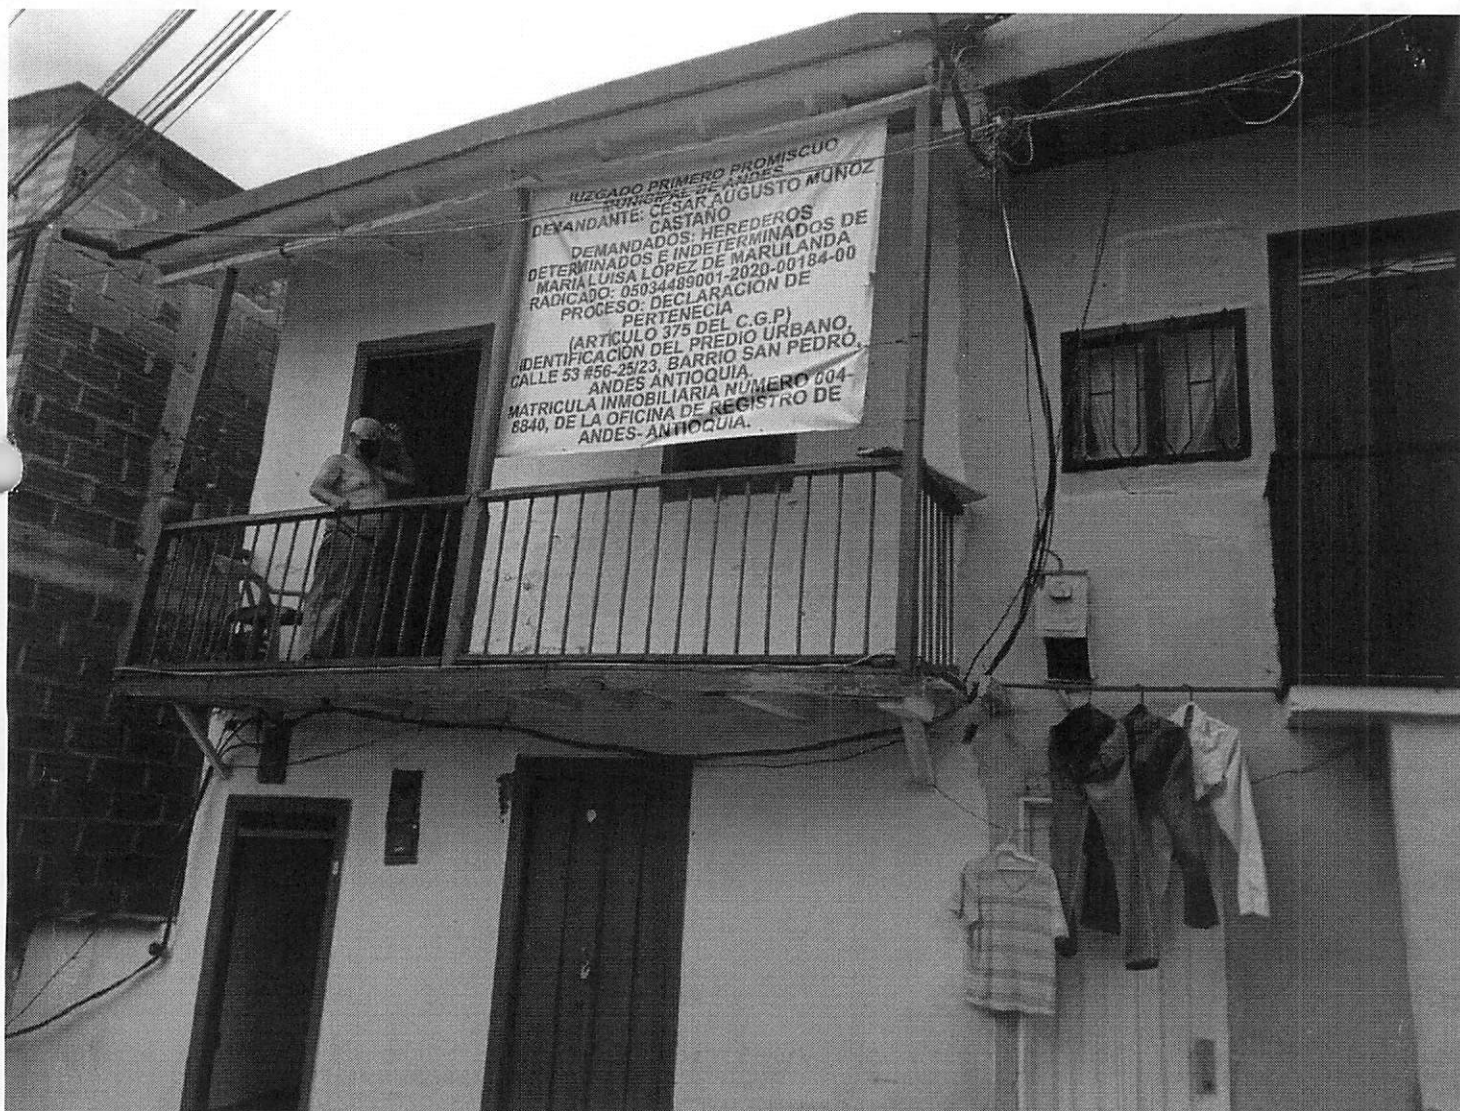 JUZGADO PRIMERO PROMISCUO
MUNICIPAL DE ANDES
DEMANDANTE: CÉSAR AUGUSTO MUÑOZ
CASTAÑO
DEMANDADOS: HEREDEROS
DETERMINADOS E INDETERMINADOS DE
MARÍA LUISA LÓPEZ DE MARULANDA
RADICADO: 05034489001-2020-00184-00
PROCESO: DECLARACIÓN DE
PERTENECIA
(ARTÍCULO 375 DEL C.G.P)
IDENTIFICACIÓN DEL PREDIO URBANO,
CALLE 53 #56-25/23, BARRIO SAN PEDRO,
ANDES ANTIOQUIA.
MATRICULA INMOBILIARIA NÚMERO 004-
8840, DE LA OFICINA DE REGISTRO DE
ANDES- ANTIOQUIA.